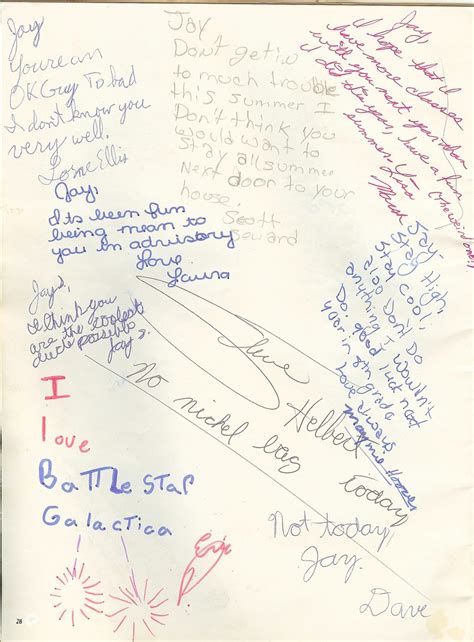 Jay
You're an
OK Guy To bad
I don't know you
very well.
Lorne Ellis
Jay
Dont get in
to much trouble
this summer I
Don't think you
would want to
stay all summer
Next door to your
house.
Scott
Seward
Jay,
I hope that I
have more classes
with you next year than
I did this year, have a fun
summer. Lisa
(the weird one!)
Jay,
Its been fun
being mean to
you in advisory
Love
Laura
Jay,
Stay High,
Stay cool,
also Don't Do
anything I wouldn't
Do, good luck next
year in 8th grade
Love always
Hoover
I think you
are the coolest
dude possible
Jay S.
Steve
Helbert
No nickel bag today
I
love
Battle Star
Galactica
Eric
Not today,
Jay.
Dave
28